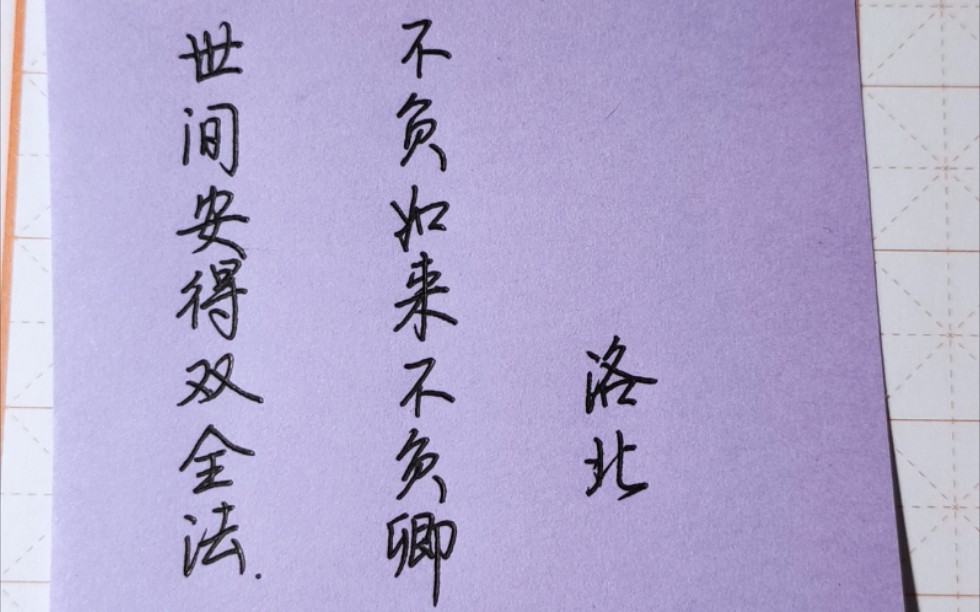 世间安得双全法.
不负如来不负卿
洛北